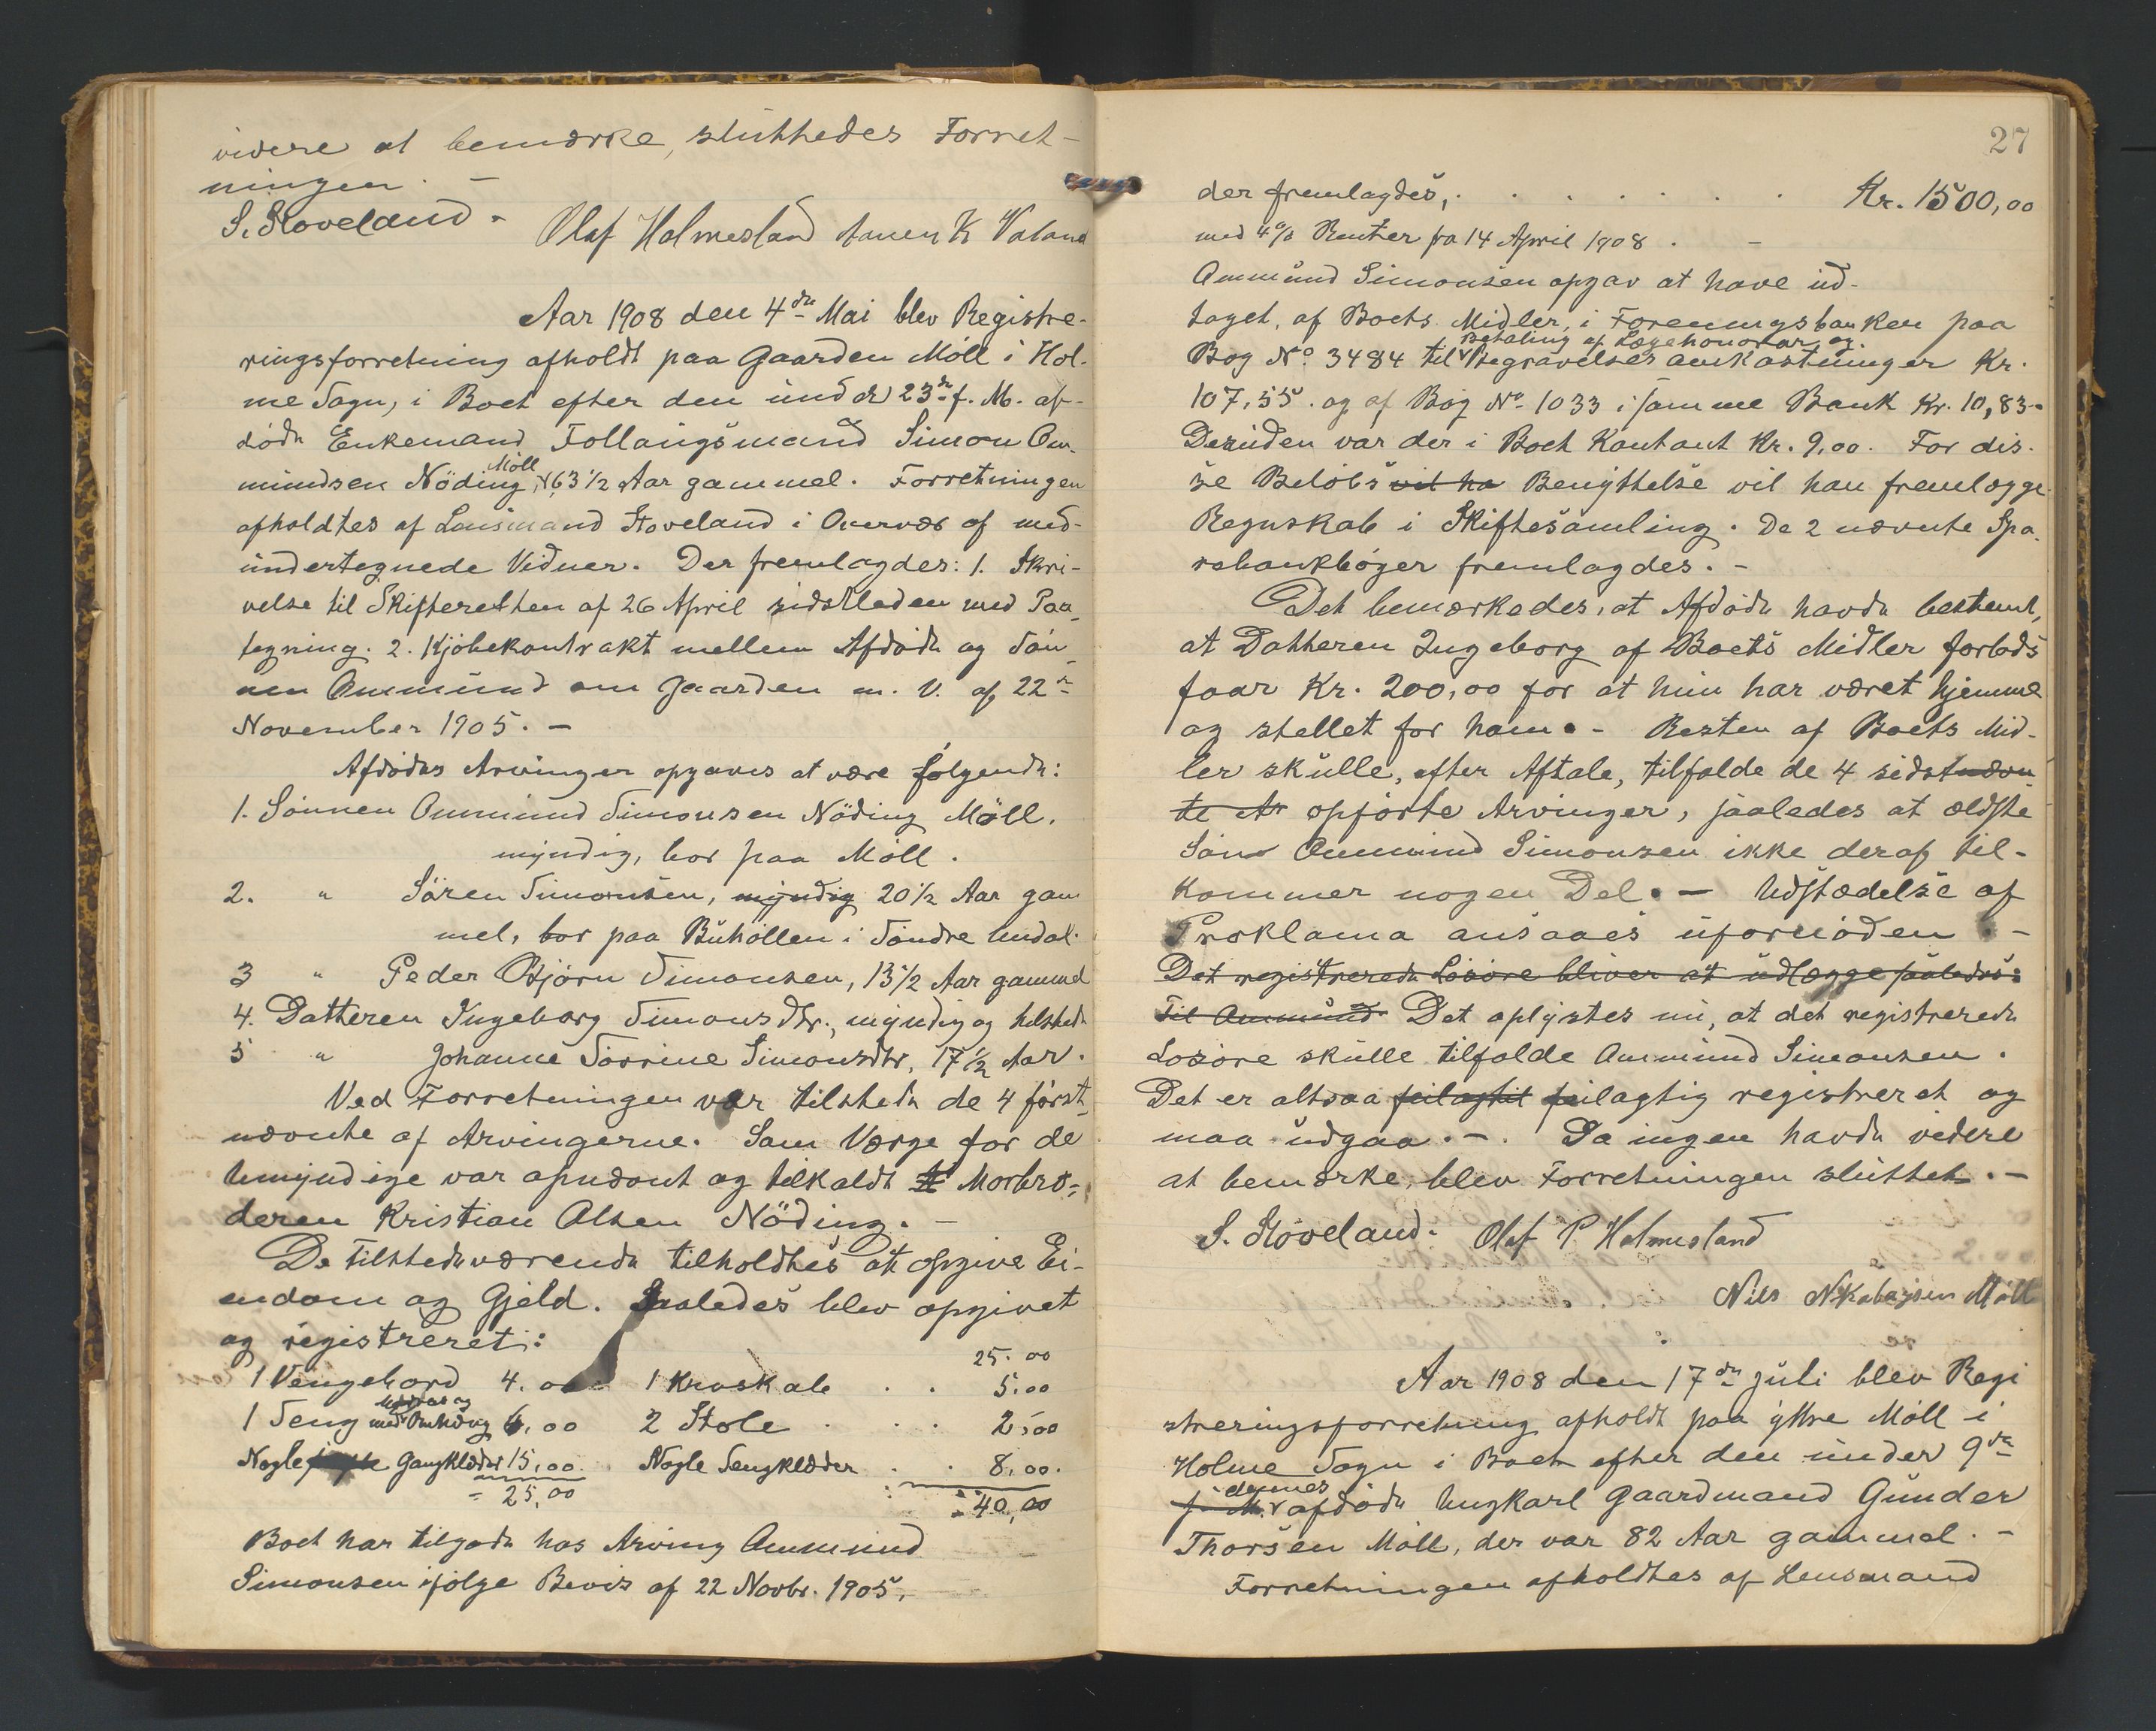 videre at bemærke, sluttedes Forret-
ningen. -
S. Stoveland. Olaf Holmesland K Valand
Aar 1908 den 4de Mai blev Registre-
ringsforretning afholdt paa Gaarden Möll i Hol-
me Sogn, i Boet efter den under 23de f. M. af-
döde Enkemand Follaugsmand Simon Om-
mundsen Nöding Möll, 63 1/2 Aar gammel. Forretningen
afholdtes af Lensmand Stoveland i Overvær af med-
undertegnede Vidner. Der fremlagdes: 1. Skri-
velse til Skifteretten af 26 April sidstleden med Paa-
tegning. 2. Kjöbekontrakt mellem Afdöde og Sön-
nen Ommund om Gaarden m. V. af 22de
November 1905. -
Afdödes Arvinger opgaves at være fölgende:
1. Sönnen Ommund Simonsen Nöding Möll,
myndig, bor paa Möll.
2. " Sören Simonsen, myndig 20 1/2 Aar gam
mel, bor paa Buhöllen i Söndre Undal.
3 " Peder Björn Simonsen, 13 1/2 Aar gammel
4. Datteren Ingeborg Simonsdtr., myndig og tilstede
5 " Johanne Sorrine Simonsdtr, 17 1/2 Aar.
Ved Forretningen var tilstede de 4 först-
nævnte af Arvingerne. Som Værge for de
Umyndige var opnævnt og tilkaldt Morbro-
deren Kristian Olsen Nöding. -
De Tilstedeværende tilholdtes at opgive Ei-
endom og Gjeld. Saaledes blev opgivet
og registreret:
25.00
1 Vengebord 4.00 1 Kroskab . . 5.00
1 Seng med Madras og Omhæng 6,00 2 Stole . . . 2,00
Nogle Gangklæder 15,00. Nogle Sengklæder . . 8,00.
= 25,00 = 40,00
Boet har tilgode hos Arving Ommund
Simonsen ifölge Bevis af 22 Novbr. 1905,
27
der fremlagdes, . . . . . . . Kr. 1500,00
med 4% Renter fra 14 April 1908 . -
Ommund Simonsen opgav at have ud-
taget, af Boets Midler, i Foreningsbanken paa
Betaling af Lægehonorar og
Bog No. 3484 til Begravelsesomkostninger Kr.
107,55. og af Bog No. 1033 i samme Bank Kr. 10,83.
Desuden var der i Boet Kontant Kr. 9,00. For dis-
se Belöbs vil ha Benyttelse vil han fremlægge
Regnskab i Skiftesamling. De 2 nævnte Spa-
rebankböger fremlagdes. -
Det bemærkedes, at Afdöde havde bestemt,
at Datteren Ingeborg af Boets Midler forlods
faar Kr. 200,00 for at hun har været hjemme
og stellet for ham. - Resten af Boets Mid-
ler skulle, efter Aftale, tilfalde de 4 sidstnævn
te Ar opförte Arvinger, saaledes at ældste
Sön Ommund Simonsen ikke deraf til-
kommer nogen Del. - Udstædelse af
Proklama ansaaes ufornöden. -
Det registrerede Lösöre bliver at udlægge saaledes:
Til Ommund Det oplystes nu, at det registrerede
Lösöre skulle tilfalde Ommund Simonsen.
Det er altsaa feilagtit feilagtig registreret og
maa udgaa. -. Da ingen havde videre
at bemærke, blev Forretningen sluttet. -
S. Stöveland. Olaf P Holmesland
Nils Möll
Aar 1908 den 17de Juli blev Regi
streringsforretning afholdt paa yttre Möll i
Holme Sogn i Boet efter den under 9de
f. M. dennes afdöde Ungkarl Gaardmand Gunder
Thorsen Möll, der var 82 Aar gammel. -
Forretningen afholdtes af Lensmand